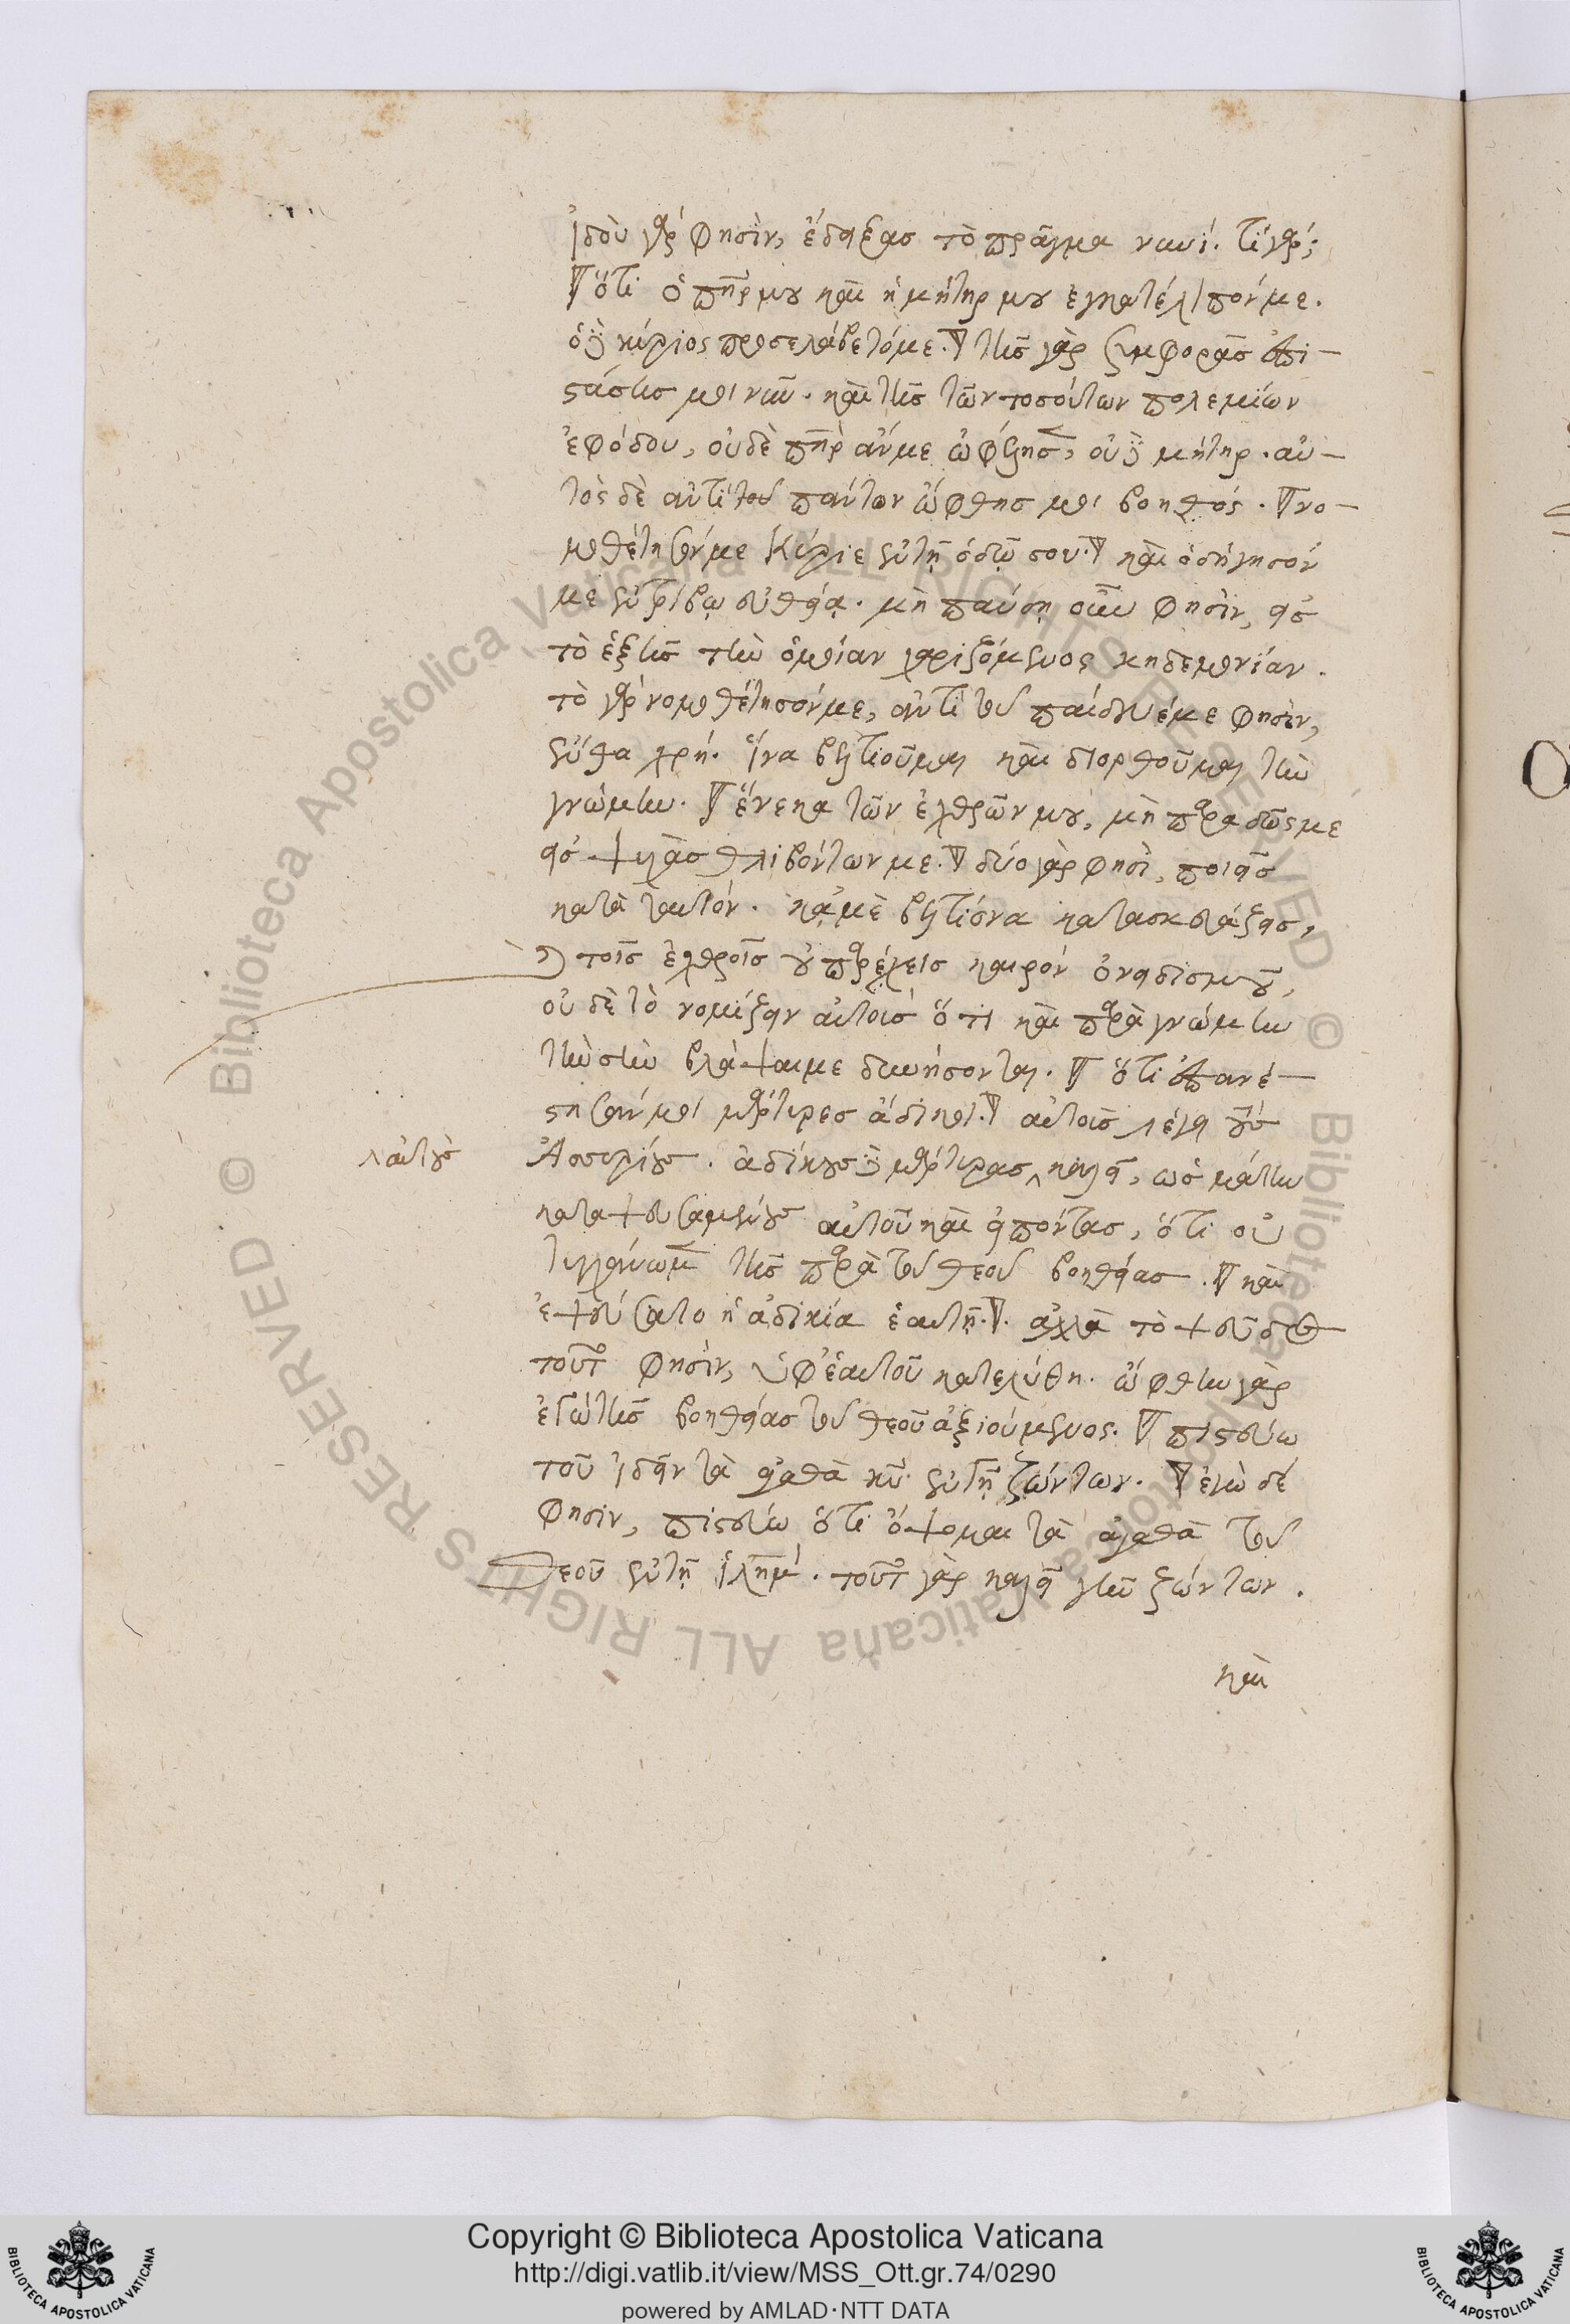 ἰδοὺ γὰρ φησὶν, ἔδειξας τὸ πρᾶγμα νυνί. τί γάρ;
ὅτι ὁ πῆρ μου καὶ ἡ μήτηρ μου ἐγκατέλιπόν με.
ὁ δὲ κύριος προσελάβετό με. τῆς γὰρ συμφορᾶς ἐπι-
στάσης μοι νῦν. καὶ τῆς τῶν τοσούτων πολεμίων
ἐφόδου, οὐδὲ πῆρ ἄν με ὠφέλησε, οὐδὲ μήτηρ. αὐ-
τὸς δὲ ἀντὶ τούτων πάντων ὤφθης μοι βοηθός. νο-
μοθέτησόν με Κύριε ἐν τῇ ὁδῷ σου. καὶ ὁδήγησόν
με ἐν τρίβῳ εὐθείᾳ. μὴ παύσῃ οὖν φησὶν, εἰς
τὸ ἑξῆς τὴν ὁμοίαν χαριζόμενος κηδεμονίαν.
τὸ γὰρ νομοθέτησόν με, ἀντὶ τοῦ παίδευέ με φησὶν,
ἔνθα χρή. ἵνα βελτιοῦμαι καὶ διορθοῦμαι τὴν
γνώμην. ἕνεκα τῶν ἐχθρῶν μου, μὴ παραδῷς με
εἰς ψυχὰς θλιβόντων με. δύο γὰρ φησὶ, ποιεῖς
κατὰ ταυτόν. κᾀμὲ βελτίονα κατασκευάζεις,
καὶ τοῖς ἐχθροῖς οὐ παρέχεις καιρὸν ὀνειδισμοῦ,
οὐδὲ τὸ νομίζειν αὐτοῖς ὅτι καὶ παρὰ γνώμην
τὴν σὴν βλάψαι με δυνήσονται. ὅτι ἐπανέ-
στησάν μοι μάρτυρες ἄδικοι. αὐτοῖς λέγει τοὺς
Ἀσσυρίους. ἀδίκους δὲ μάρτυρας ^ καλεῖ, ὡς μάτην
^ αὐτοὺς
καταψευσαμένους αὐτοῦ καὶ εἰπόντας, ὅτι οὐ
τυγχάνωμεν τῆς παρὰ τοῦ θεοῦ βοηθείας. καὶ
ἐψεύσατο ἡ ἀδικία ἑαυτῇ. ἀλλὰ τὸ ψεῦδος
τοῦτο φησὶν, ὑφ' ἑαυτοῦ κατελύθη. ὤφθην γὰρ
ἐγὼ τῆς βοηθείας τοῦ θεοῦ ἀξιούμενος. πιστεύω
τοῦ ἰδεῖν τὰ ἀγαθὰ κῦ ἐν γῇ ζώντων. ἐγὼ δέ
φησιν, πιστεύω ὅτι ὄψομαι τὰ ἀγαθὰ τοῦ
Θεοῦ ἐν τῇ ἱλῆμ. τοῦτο γὰρ καλεῖ γῆν ζώντων.
καὶ
Copyright © Biblioteca Apostolica Vaticana
http://digi.vatlib.it/view/MSS_Ott.gr.74/0290
powered by AMLAD·NTT DATA
BIBLIOTECA APOSTOLICA VATICANA
BIBLIOTECA APOSTOLICA VATICANA
© Biblioteca Apostolica Vaticana ALL RIGHTS RESERVED
© Biblioteca Apostolica Vaticana ALL RIGHTS RESERVED